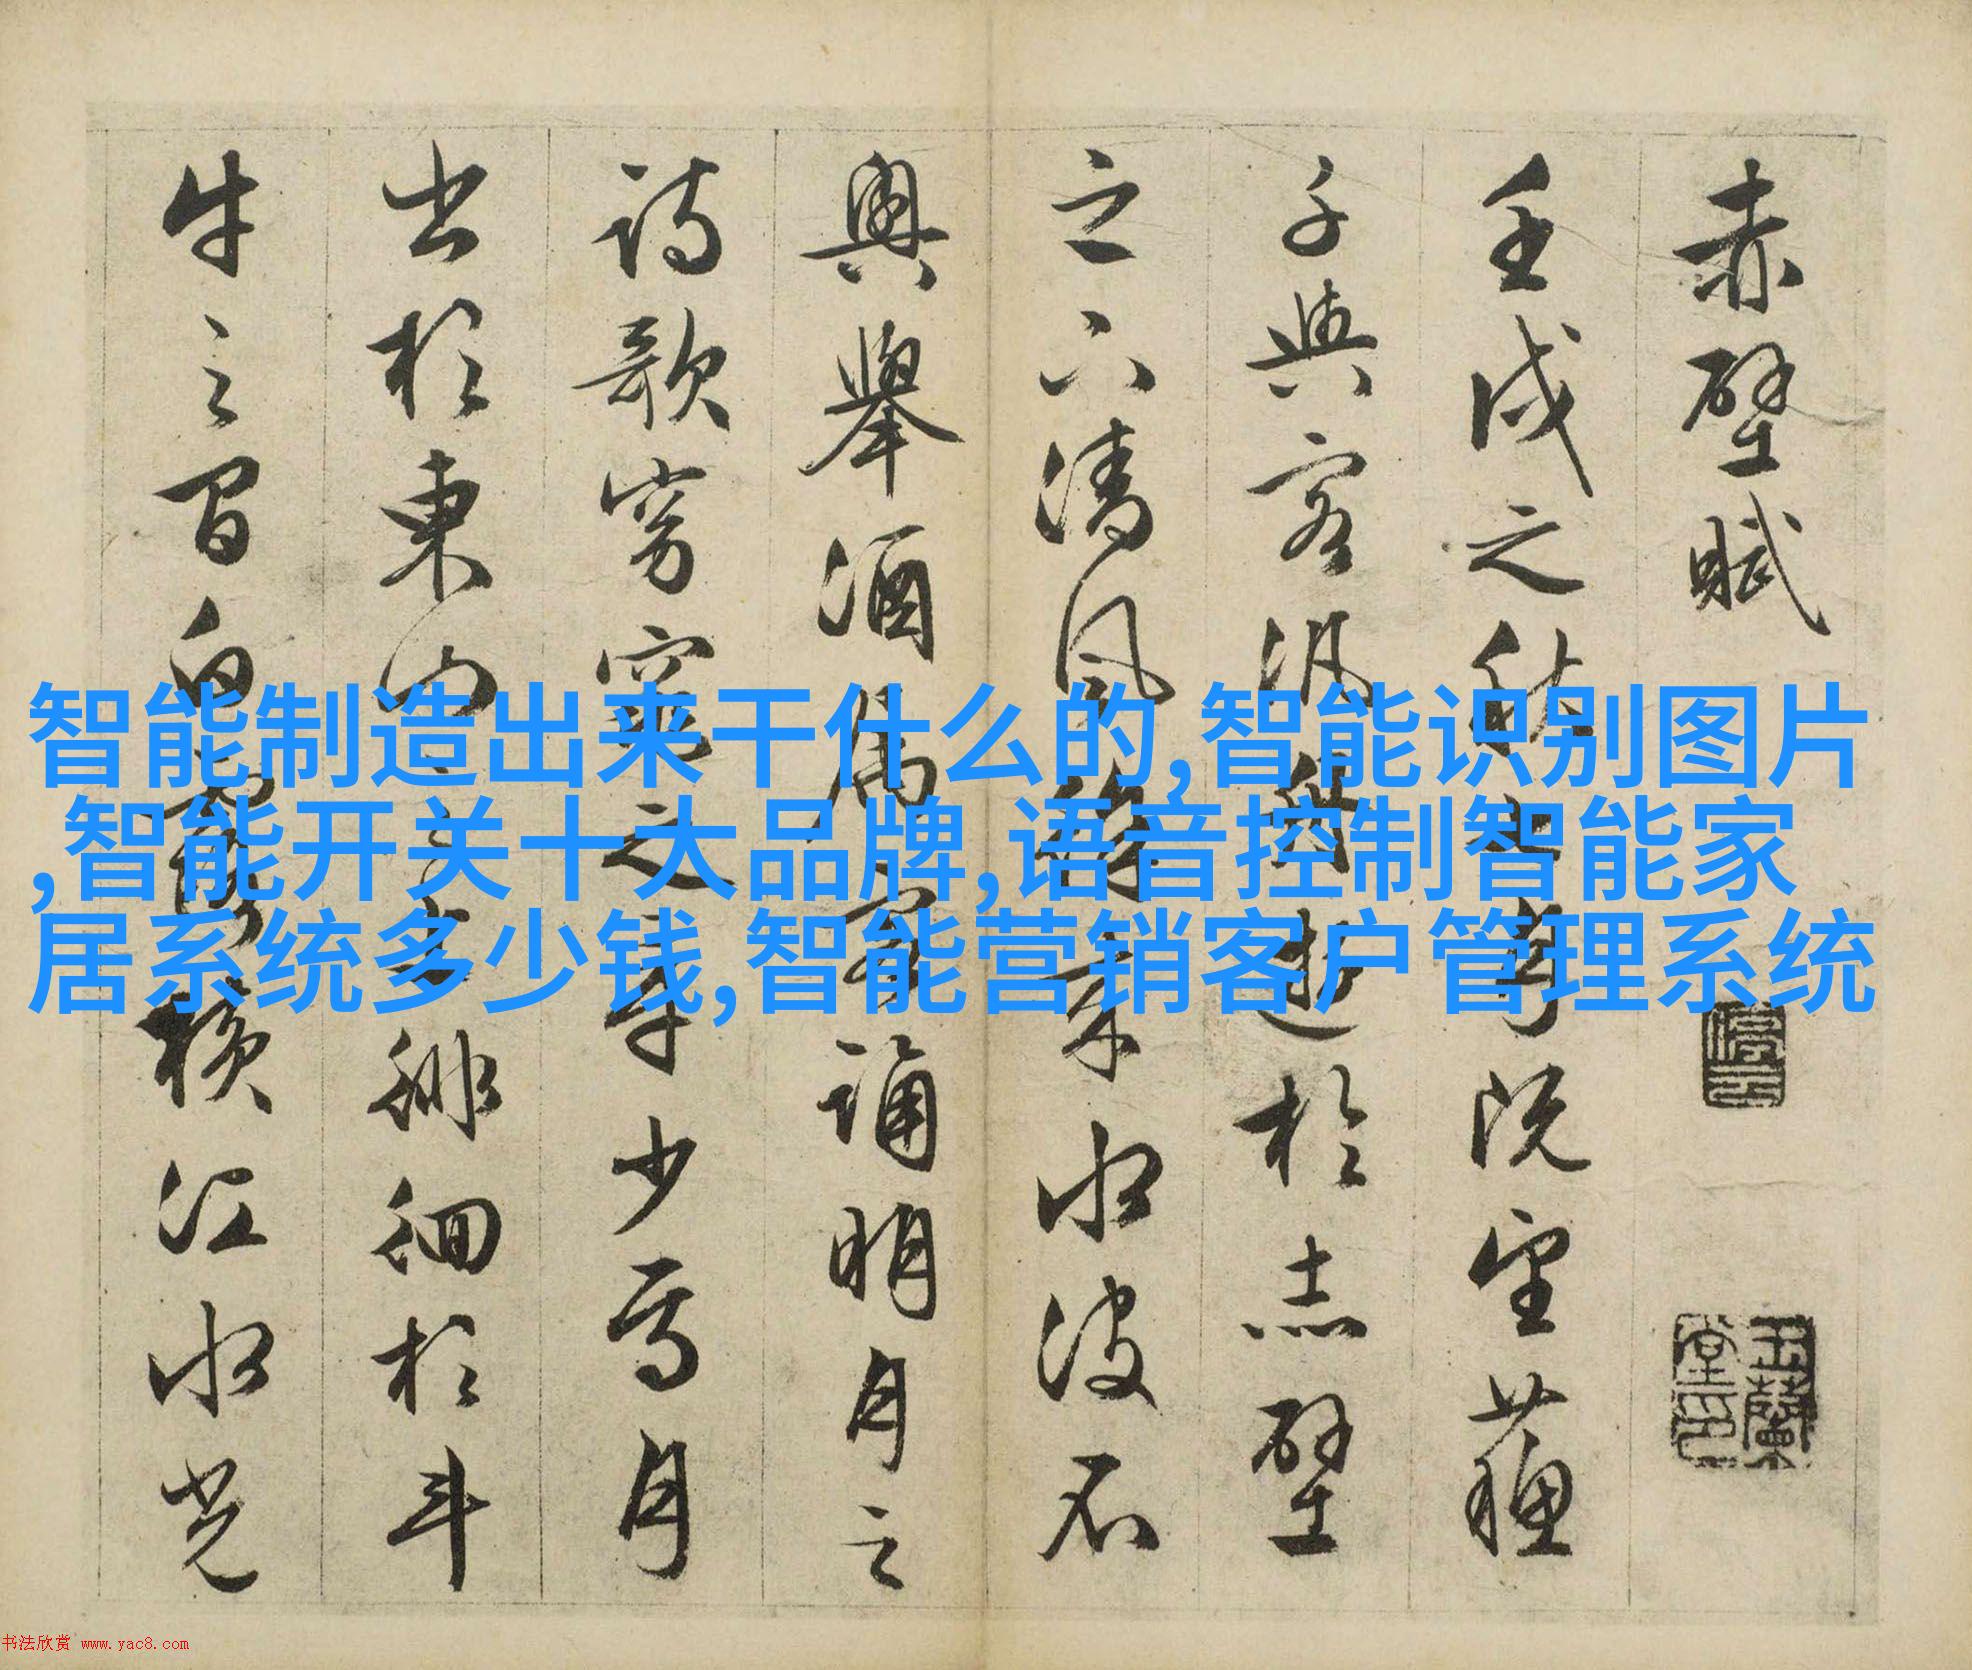 赤壁賦
壬戌之秋七月既望蘇
子與客汎舟遊於赤壁
之下清風徐來水波不
興舉酒屬客誦明月之
詩歌窈窕之章少焉月
出於東山之上徘徊於斗
牛之間白露橫江水光
停雲
玉蘭堂印
智能制造出来干什么的,智能识别图片
,智能开关十大品牌,语音控制智能家
居系统多少钱,智能营销客户管理系统
书法欣赏 www.yac8.com